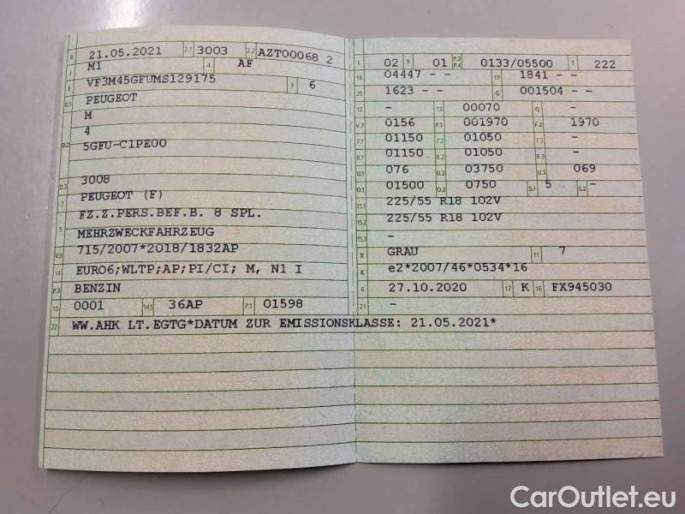 21.05.2021 2.1 3003 2.2 AZT00068 2
M1 4 AF
VF3M45GFUMS129175 3 6
PEUGEOT
M
4
5GFU-C1PE00
3008
PEUGEOT (F)
FZ.Z.PERS.BEF.B. 8 SPL.
MEHRZWECKFAHRZEUG
715/2007*2018/1832AP
EURO6;WLTP;AP;PI/CI; M, N1 I
BENZIN
0001 36AP P.1 01598
22 WW.AHK LT.EGTG*DATUM ZUR EMISSIONSKLASSE: 21.05.2021*
L 02 9 01 P.2 P.4 0133/05500 T 222
18 04447 - - 19 1841 - -
20 1623 - - G 001504 - -
12 - 13 00070 Q -
V.7 0156 F.1 001970 F.2 1970
7.1 01150 7.2 01050 7.3 -
8.1 01150 8.2 01050 8.3 -
U.1 076 U.2 03750 U.3 069
O.1 01500 O.2 0750 S.1 5 S.2 -
15.1 225/55 R18 102V
15.2 225/55 R18 102V
15.3 -
R GRAU 11 7
K e2*2007/46*0534*16
6 27.10.2020 17 K 16 FX945030
21 -
CarOutlet.eu